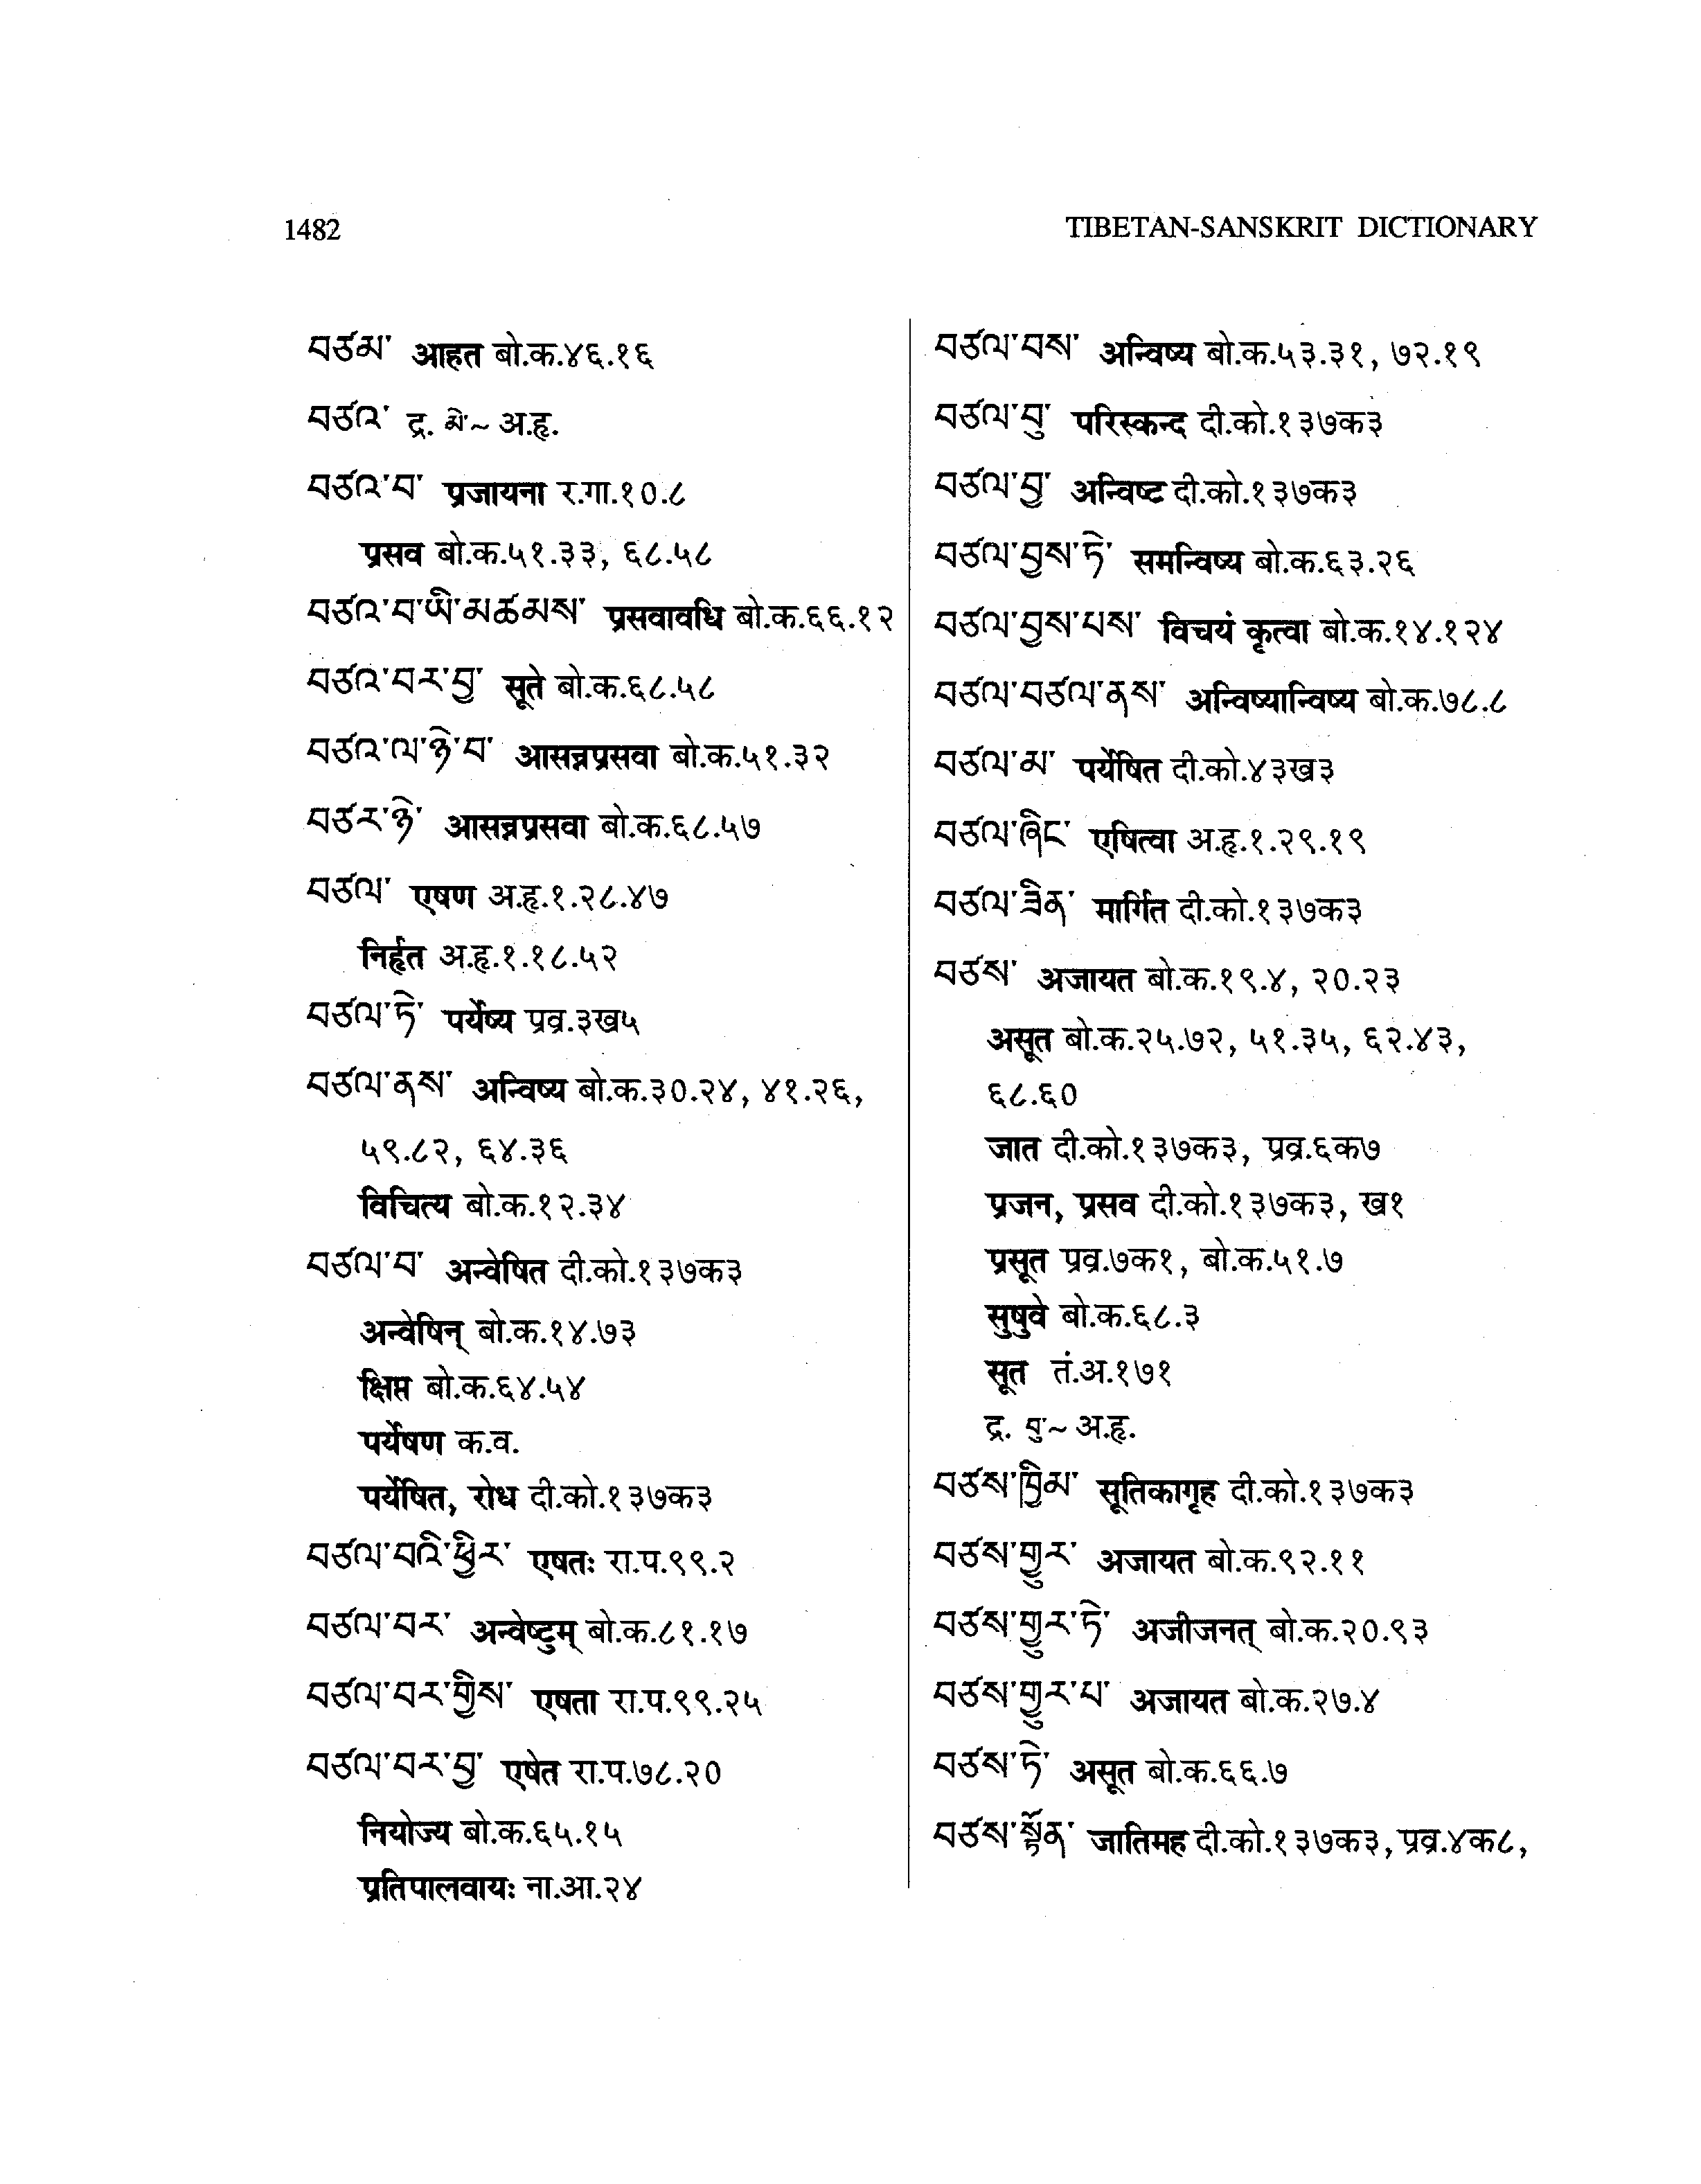 1482
TIBETAN-SANSKRIT DICTIONARY
བཙམ་ आहत बो.क.४६.१६
བཙའ་ द्र. མེ་~ अ.हृ.
བཙའ་བ་ प्रजायना र.गा.१०.८
प्रसव बो.क.५१.३३, ६८.५८
བཙའ་བ་ཡི་མཚམས་ प्रसवावधि बो.क.६६.१२
བཙའ་བར་བྱ་ सूते बो.क.६८.५८
བཙའ་ལ་ཉེ་བ་ आसन्नप्रसवा बो.क.५१.३२
བཙར་ཉེ་ आसन्नप्रसवा बो.क.६८.५७
བཙལ་ एषण अ.हृ.१.२८.४७
निर्हृत अ.हृ.१.१८.५२
བཙལ་ཏེ་ पर्येष्य प्रव्र.३ख५
བཙལ་ནས་ अन्विष्य बो.क.३०.२४, ४१.२६,
५९.८२, ६४.३६
विचित्य बो.क.१२.३४
བཙལ་བ་ अन्वेषित दी.को.१३७क३
अन्वेषिन् बो.क.१४.७३
क्षिप्त बो.क.६४.५४
पर्येषण क.व.
पर्येषित, रोध दी.को.१३७क३
བཙལ་བའི་ཕྱིར་ एषतः रा.प.९९.२
བཙལ་བར་ अन्वेष्टुम् बो.क.८१.१७
བཙལ་བར་གྱིས་ एषता रा.प.९९.२५
བཙལ་བར་བྱ་ एषेत रा.प.७८.२०
नियोज्य बो.क.६५.१५
प्रतिपालवायः ना.आ.२४
བཙལ་བས་ अन्विष्य बो.क.५३.३१, ७२.१९
བཙལ་བུ་ परिस्कन्द दी.को.१३७क३
བཙལ་བྱ་ अन्विष्ट दी.को.१३७क३
བཙལ་བྱས་ཏེ་ समन्विष्य बो.क.६३.२६
བཙལ་བྱས་པས་ विचयं कृत्वा बो.क.१४.१२४
བཙལ་བཙལ་ནས་ अन्विष्यान्विष्य बो.क.७८.८
བཙལ་མ་ पर्येषित दी.को.४३ख३
བཙལ་ཞིང་ एषित्वा अ.हृ.१.२९.१९
བཙལ་ཟིན་ मार्गित दी.को.१३७क३
བཙས་ अजायत बो.क.१९.४, २०.२३
असूत बो.क.२५.७२, ५१.३५, ६२.४३,
६८.६०
जात दी.को.१३७क३, प्रव्र.६क७
प्रजन, प्रसव दी.को.१३७क३, ख१
प्रसूत प्रव्र.७क१, बो.क.५१.७
सुषुवे बो.क.६८.३
सूत तं.अ.१७१
द्र. བུ་~ अ.हृ.
བཙས་ཁྲིམ་ सूतिकागृह दी.को.१३७क३
བཙས་གྱུར་ अजायत बो.क.९२.११
བཙས་གྱུར་ཏེ་ अजीजनत् बो.क.२०.९३
བཙས་གྱུར་པ་ अजायत बो.क.२७.४
བཙས་ཏེ་ असूत बो.क.६६.७
བཙས་སྟོན་ जातिमह दी.को.१३७क३, प्रव्र.४क८,